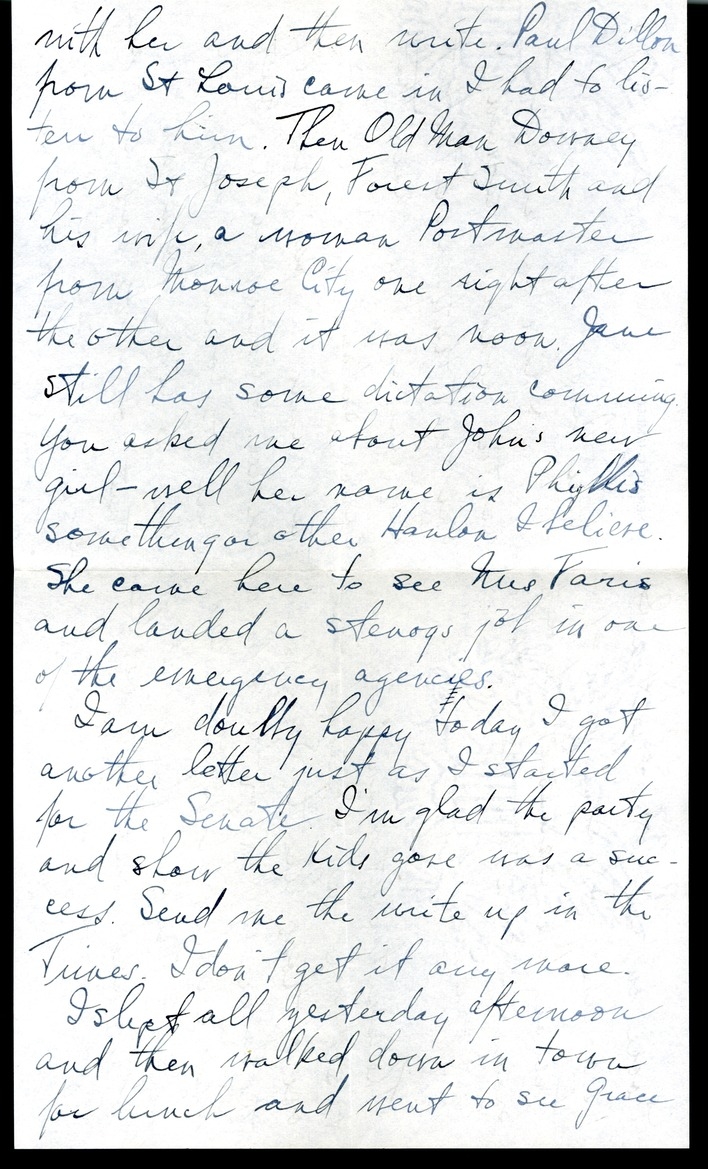 with her and then write. Paul Dillon
from St Louis came in I had to lis-
ten to him. Then Old Man Downey
from St Joseph, Forest Smith and
his wife, a woman Postmaster
from Monroe City one right after
the other and it was noon. Jane
still has some dictation comming.
You asked me about John's new
girl - well her name is Phyllis
something or other Hanlon I believe.
She came here to see Mrs Faris
and landed a stenogs job in one
of the emergency agencies.
I am doubly happy today I got
another letter just as I started
for the Senate. I'm glad the party
and show the kids gave was a suc-
cess. Send me the write up in the
Times. I don't get it any more.
I slept all yesterday afternoon
and then walked down in town
for lunch and went to see Grace